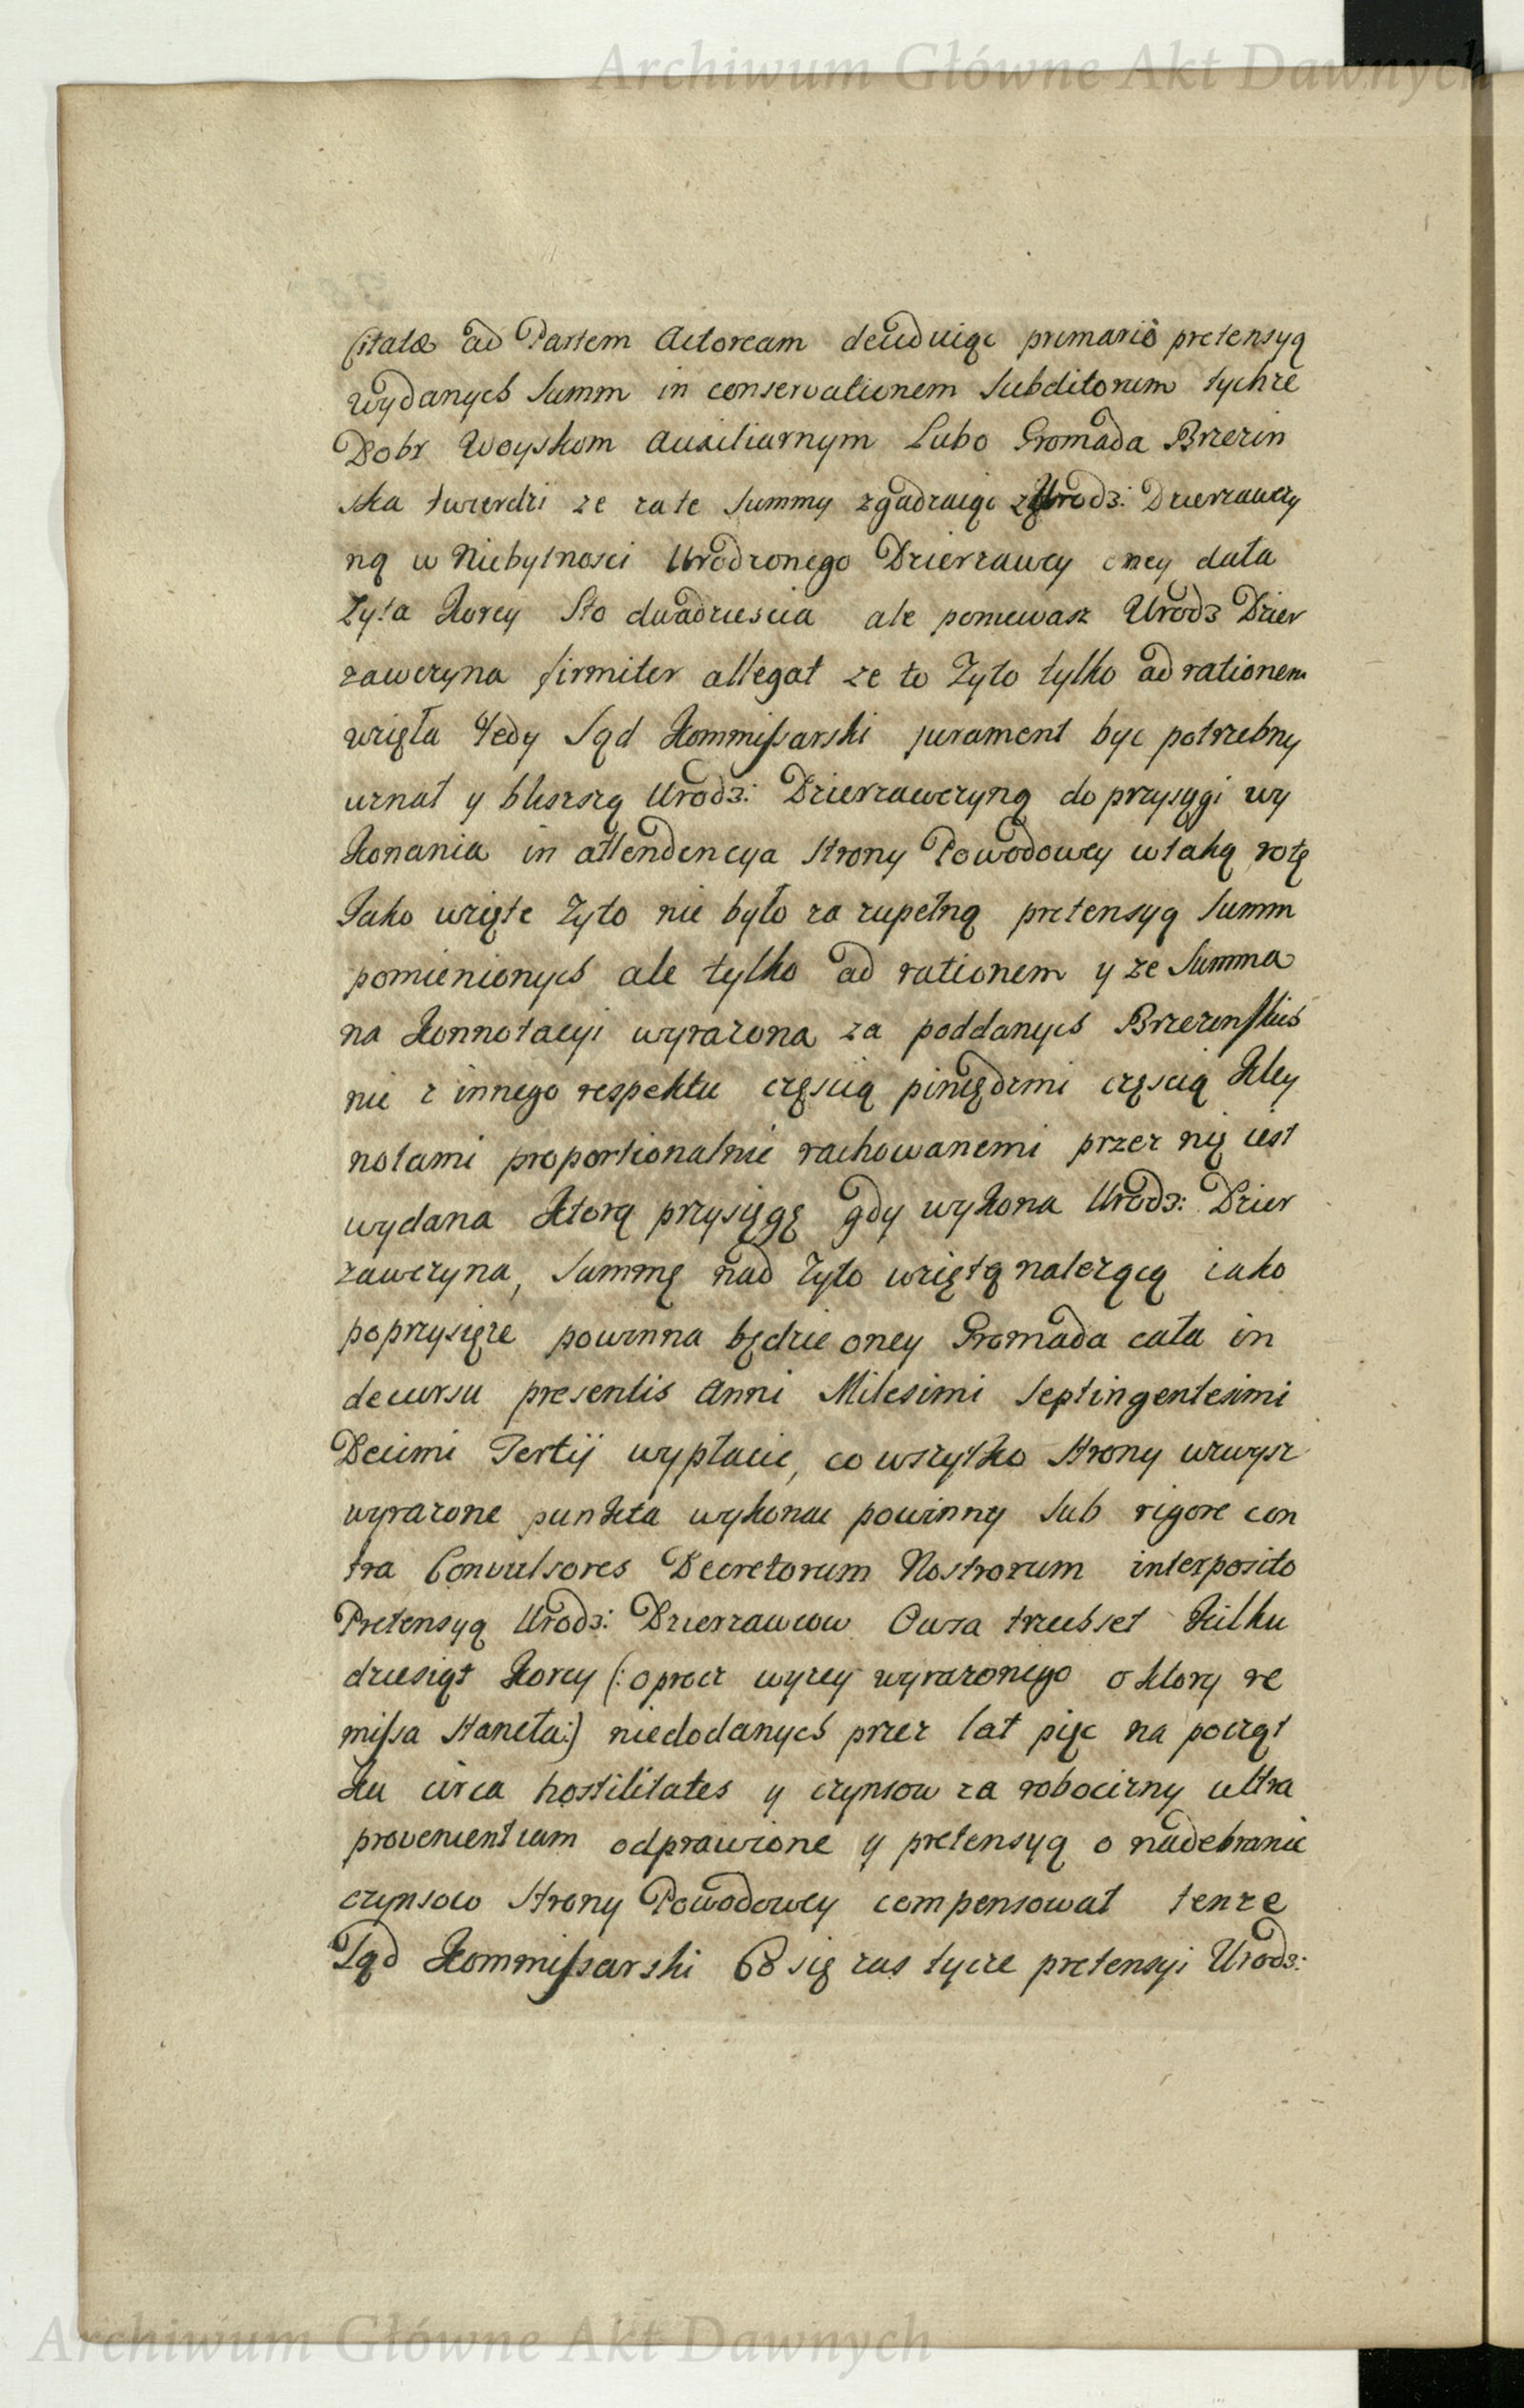 Archiwum Główne Akt Dawnych
Citatæ ad Partem Actoream deuduiąc primario pretensyą
wydanych Summ in conservationem Subditorum tychze
Dobr Woyskom Auxiliarnym Lubo Gromada Brzezin
ska twierdzi ze za te Summy zgadzaiąc z Urodz: Dzierzawczy
ną w Niebytnosci Urodzonego Dzierzawcy oney data
Zyta Korcy Sto dwadziescia ale poniewasz Urodz Dzier
zawczyna firmiter allegat ze to Zyto tylko ad rationem
wzięła Tedy Sąd Kommissarski jurament byc potrzebny
uznał y bliszszą Urodz: Dzierzawczyną do przysęgi wy
Konania in attendencya Strony Powodowey w taką rotę
Jako wzięte Zyto nie było za zupełną pretensyą Summ
pomienionych ale tylko ad rationem y ze Summa
na Konnotacyi wyrazona za poddanych Brzezinskich
nie z innego respektu częscią piniędzmi częscią Kley
notami proportionalnie rachowanemi przez nię iest
wydana Ktorą przysięgę gdy wykona Urodz: Dzier
zawczyna, Summę nad Zyto wziętą nalezącą iako
poprzysięze powinna będzie oney Gromada cała in
decursu presentis Anni Milesimi Septingentesimi
Decimi Tertij wypłacic, co wszytko Strony wzwysz
wyrazone punkta wykonac powinny Sub rigore con
tra Convulsores Decretorum Nostrorum interposito
Pretensyą Urodz: Dzierzawcow Owsa trzechset Kilku
dziesiąt Korcy (: oprocz wyzey wyrazonego o ktory re
missa Staneła:) niedodanych przez lat pięc na począt
ku circa hostilitates y czynsow za robocizny ultra
provenientiam odprawione y pretensyą o nadebranie
czynsow Strony Powodowey compensował tenze
Sąd Kommissarski Co się zas tycze pretensyi Urodz:
Archiwum Główne Akt Dawnych